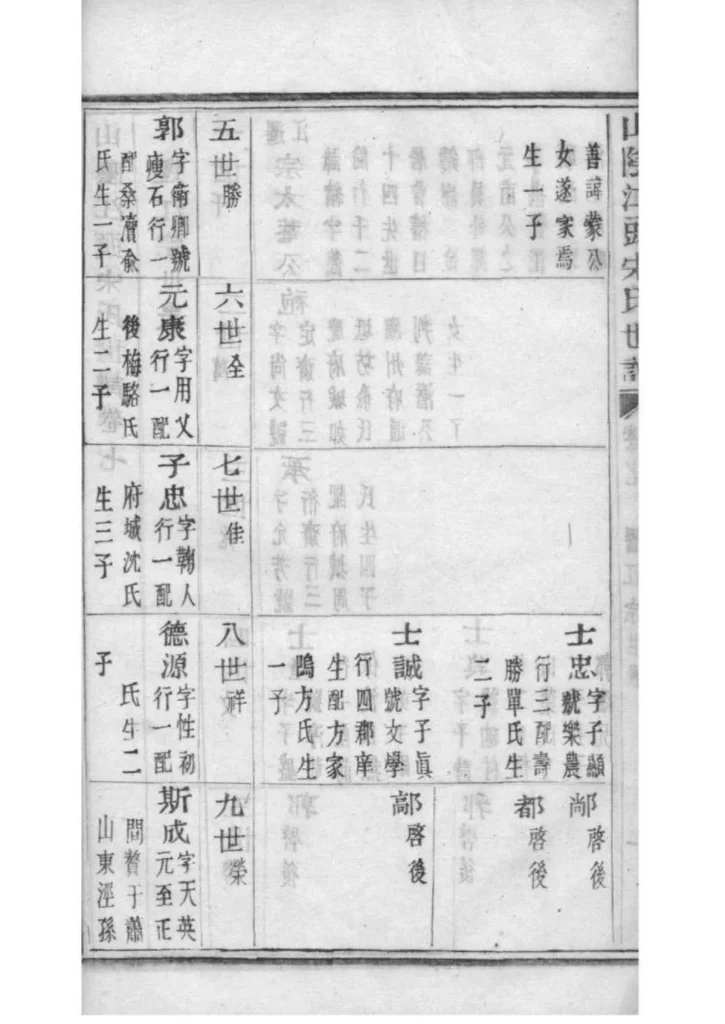 山陰江頭宋氏世譜
善諱蒙公
女遂家焉
生一子
士忠字子顯
號樂農
行三配壽
勝單氏生
二子
士誠字子眞
號文學
行四郡庠
生配方家
鴟方氏生
一子
鄗啓後
都啓後
鄗啓後
五世勝
六世全
七世佳
八世祥
九世榮
郭字衛卿號
痩石行一
配桑瀆兪
氏生一子
元康字用父
行一配
後梅駱氏
生二子
子忠字翰人
行一配
府城沈氏
生三子
德源字性初
行一配
氏生二
子
斯成字天英
元至正
間贅于蕭
山東涇孫